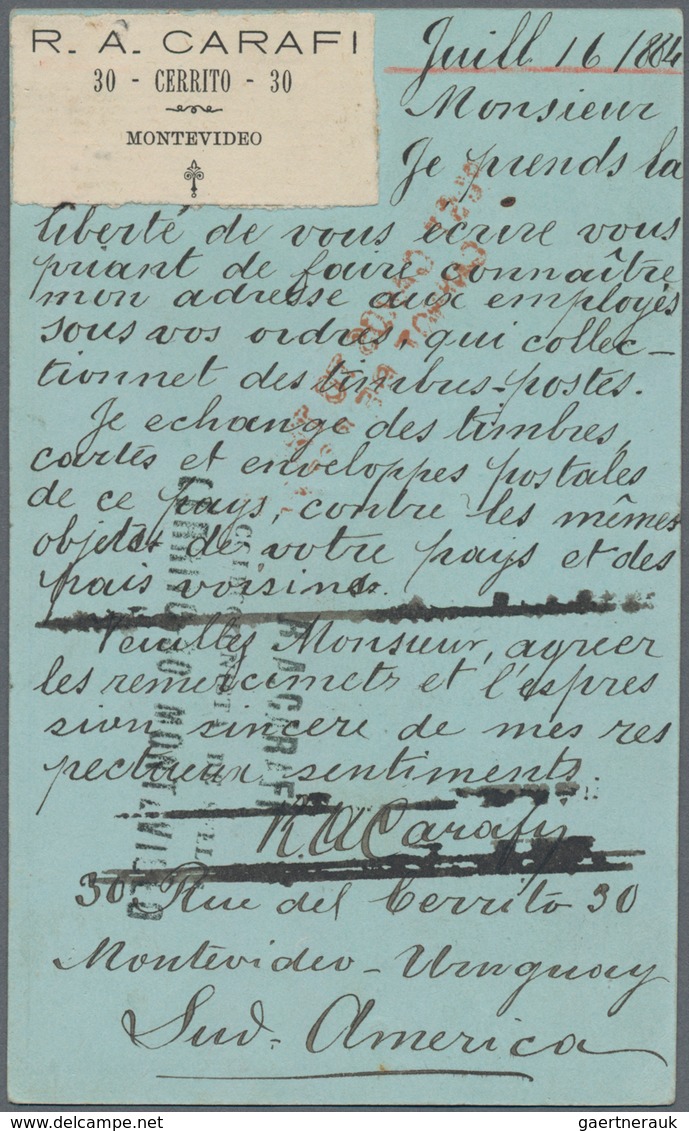 R. A. CARAFI
30 - CERRITO - 30
MONTEVIDEO
Juill 16 / 884
Monsieur
Je prends la
liberté de vous écrire vous
priant de faire connaître
mon adresse aux employés
sous vos ordres, qui collec-
tionnet des timbres-postes.
Je echange des timbres,
cartes et enveloppes postales
de ce pays, contre les mêmes
objets de votre pays et des
pais voisins.
Veuilles Monsieur, agreer
les remercimets et l'espres
sion sincere de mes res
pectueux sentiments.
R. A Carafy
30 Rue del Cerrito 30
Montevideo - Uruguay
Sud- America
R. A. CARAFI
CERRITO 30 MONTEVIDEO
gaertnerauk@gmail.com